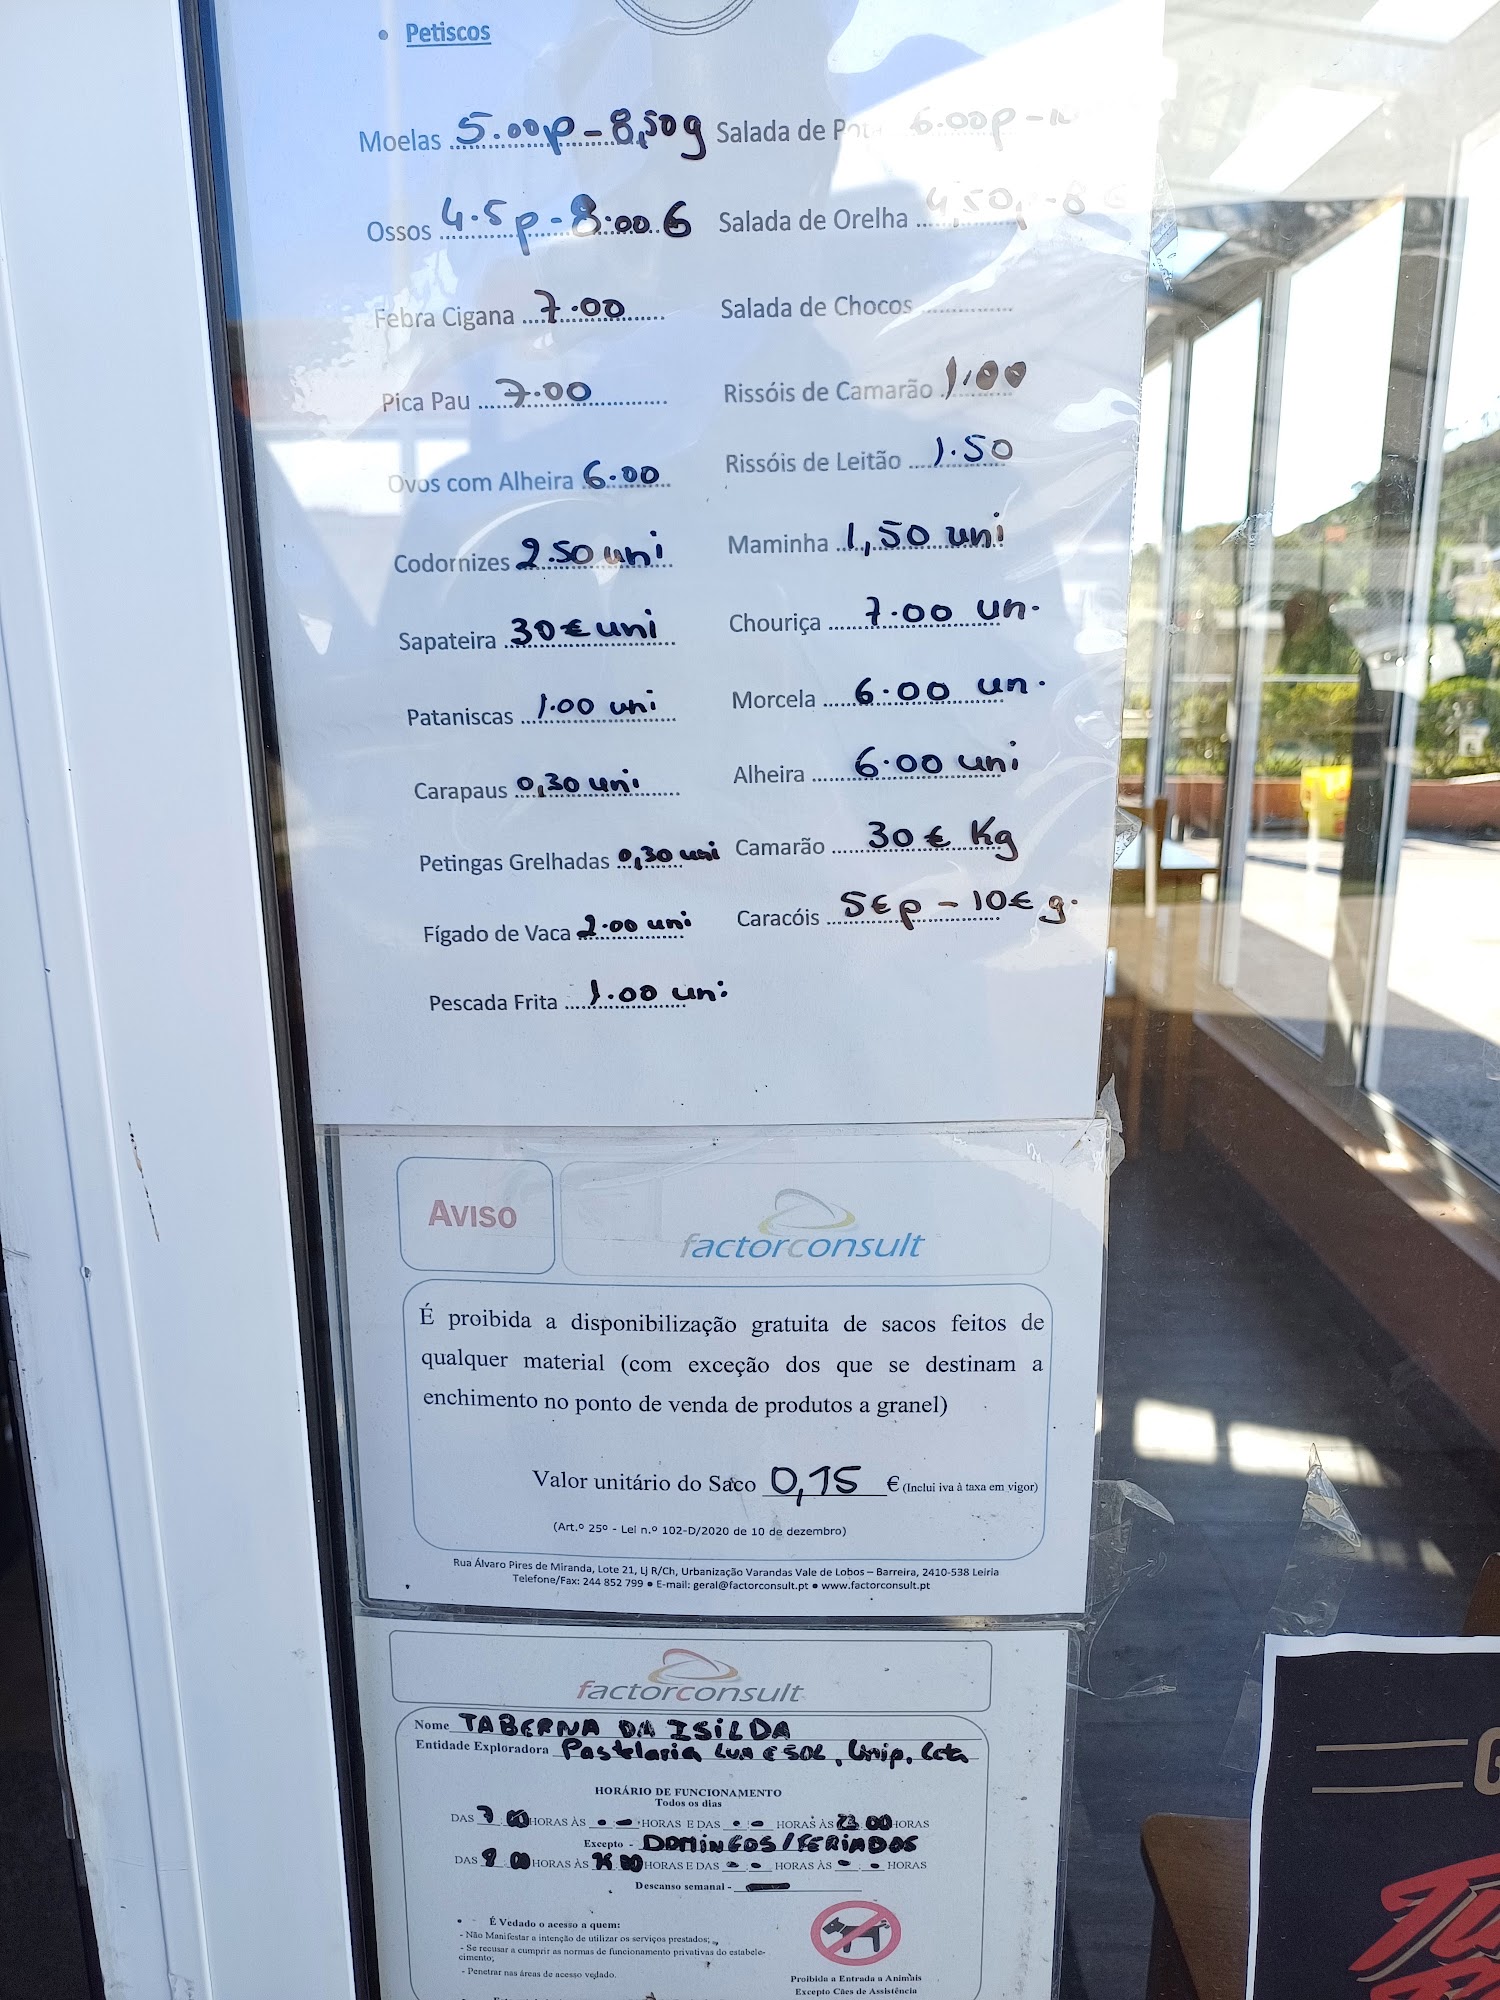 • Petiscos
Moelas 5.00p - 8,50g
Ossos 4.5p - 8:00 G
Febra Cigana 7.00
Pica Pau 7.00
Ovos com Alheira 6.00
Codornizes 2.50 uni
Sapateira 30€ uni
Pataniscas 1.00 uni
Carapaus 0,30 uni
Petingas Grelhadas 0,30 uni
Fígado de Vaca 2.00 uni
Pescada Frita 1.00 uni
Salada de 6.00p -
Salada de Orelha 4,50p - 8 G
Salada de Chocos
Rissóis de Camarão 1.00
Rissóis de Leitão 1.50
Maminha 1,50 uni
Chouriça 7.00 un.
Morcela 6.00 un.
Alheira 6.00 uni
Camarão 30 € Kg
Caracóis 5€ p - 10€ g.
AVISO
factorconsult
É proibida a disponibilização gratuita de sacos feitos de
qualquer material (com exceção dos que se destinam a
enchimento no ponto de venda de produtos a granel)
Valor unitário do Saco 0,15 € (Inclui iva à taxa em vigor)
(Art.º 25º - Lei n.º 102-D/2020 de 10 de dezembro)
Rua Álvaro Pires de Miranda, Lote 21, Lj R/Ch, Urbanização Varandas Vale de Lobos – Barreira, 2410-538 Leiria
Telefone/Fax: 244 852 799 ● E-mail: geral@factorconsult.pt ● www.factorconsult.pt
factorconsult
Nome TABERNA DA ISILDA
Entidade Exploradora Pastelaria LUA E SOL, Unip. Lda
HORÁRIO DE FUNCIONAMENTO
Todos os dias
DAS 7 00 HORAS ÀS - HORAS E DAS - HORAS ÀS 23 00 HORAS
Excepto - DOMINGOS/FERIADOS
DAS 8 00 HORAS ÀS 00 HORAS E DAS - HORAS ÀS - HORAS
Descanso semanal -
• - É Vedado o acesso a quem:
- Não Manifestar a intenção de utilizar os serviços prestados;
- Se recusar a cumprir as normas de funcionamento privativas do estabele-
cimento;
- Penetrar nas áreas de acesso vedado.
Proibida a Entrada a Animais
Excepto Cães de Assistência